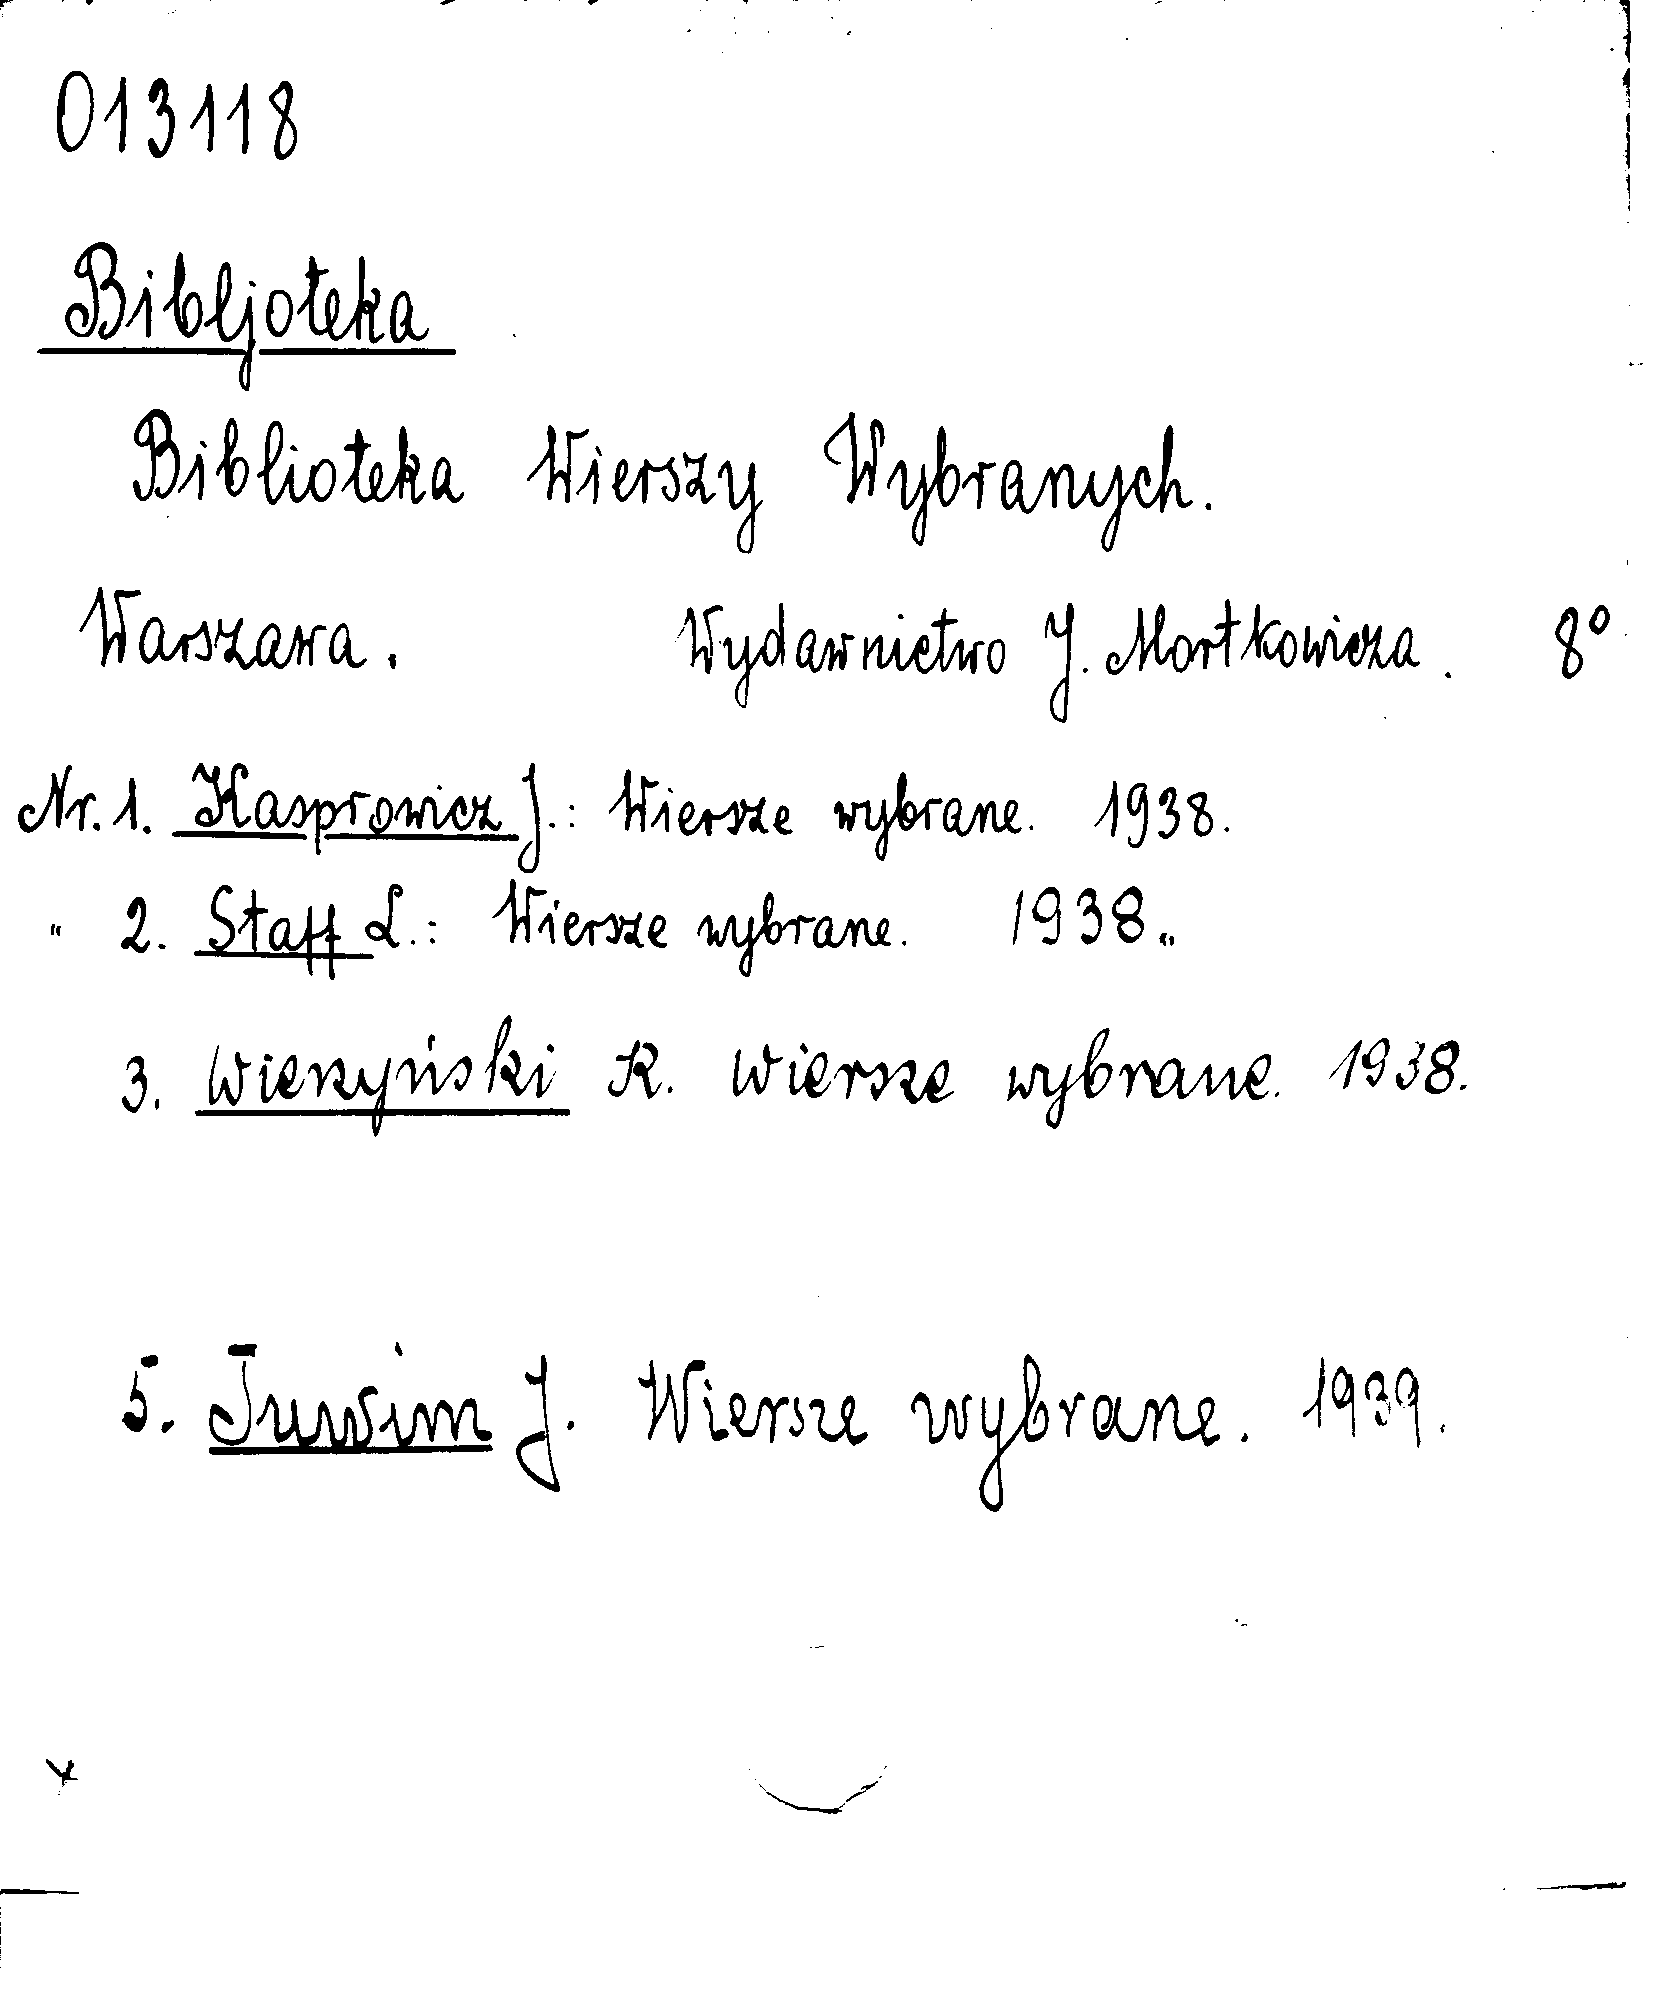 013118
Bibljoteka
Biblioteka Wierszy Wybranych.
Warszawa. Wydawnictwo J. Mortkowicza. 8°
Nr. 1. Kasprowicz J.: Wiersze wybrane. 1938.
" 2. Staff L.: Wiersze wybrane. 1938.
3. Wierzyński K. Wiersze wybrane. 1938.
5. Tuwim J. Wiersze wybrane. 1939.